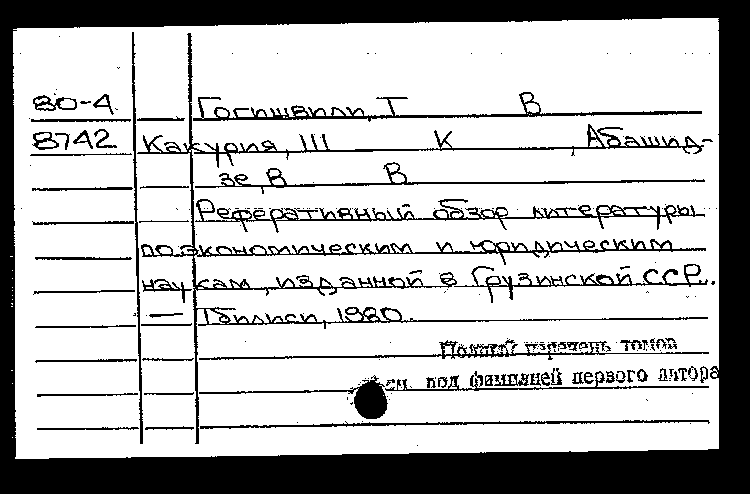 80-4 Гогишвили, Т В
8742 Какурия, Ш К , Абашид-
зе, В В
Реферативный обзор литературы
по экономическим и юридическим
наукам, изданной в Грузинской ССР.
— Тбилиси, 1980.
Полный перечень томов
см. под фамилией первого автора